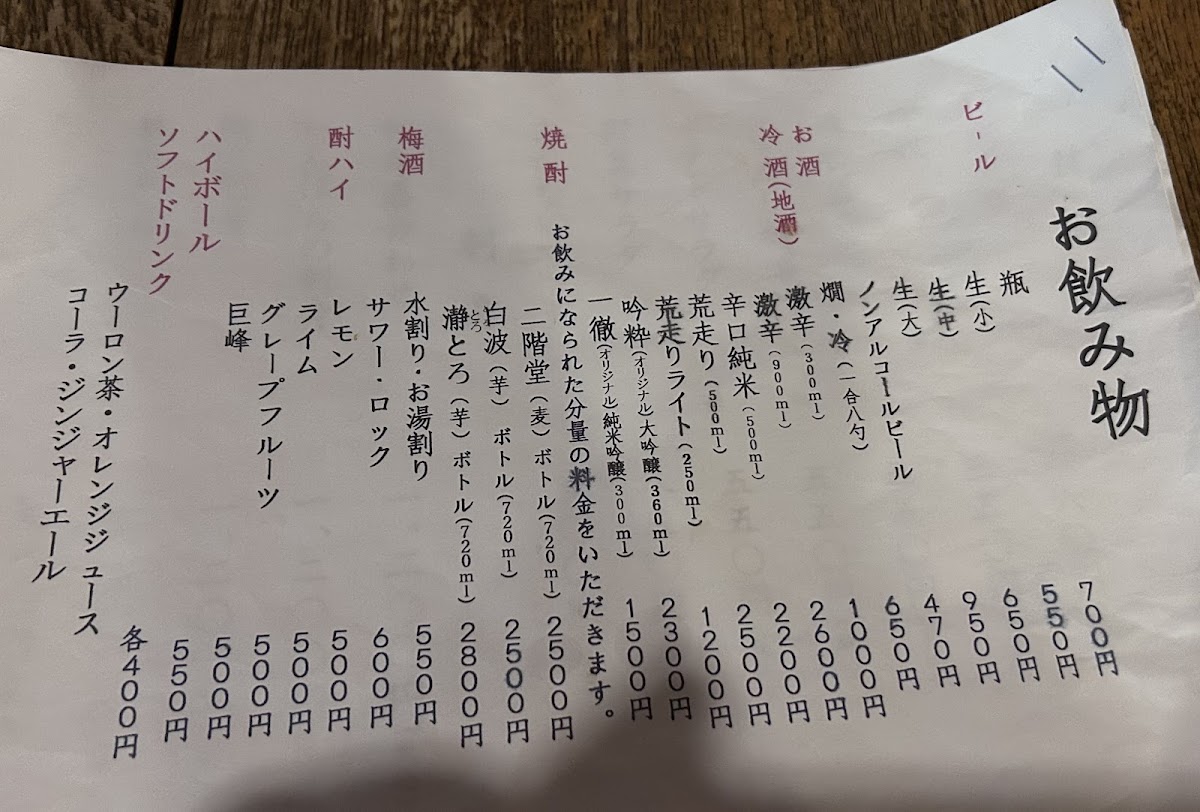 お飲み物
ビール 瓶 700円
生(小) 550円
生(中) 650円
生(大) 950円
ノンアルコールビール 470円
お酒 燗・冷(一合八勺) 650円
冷酒(地酒) 激辛(300ml) 1000円
激辛(900ml) 2600円
辛口純米(500ml) 2200円
荒走り(500ml) 2500円
荒走りライト(250ml) 1200円
吟粋(オリジナル)大吟醸(360ml) 2300円
一徹(オリジナル)純米吟醸(300ml) 1500円
お飲みになられた分量の料金をいただきます。
焼酎 二階堂(麦)ボトル(720ml) 2500円
白波(芋)ボトル(720ml) 2500円
とろ
瀞とろ(芋)ボトル(720ml) 2800円
水割り・お湯割り 550円
梅酒 サワー・ロック 600円
酎ハイ レモン 500円
ライム 500円
グレープフルーツ 500円
巨峰 500円
ハイボール 550円
ソフトドリンク
ウーロン茶・オレンジジュース 各400円
コーラ・ジンジャーエール